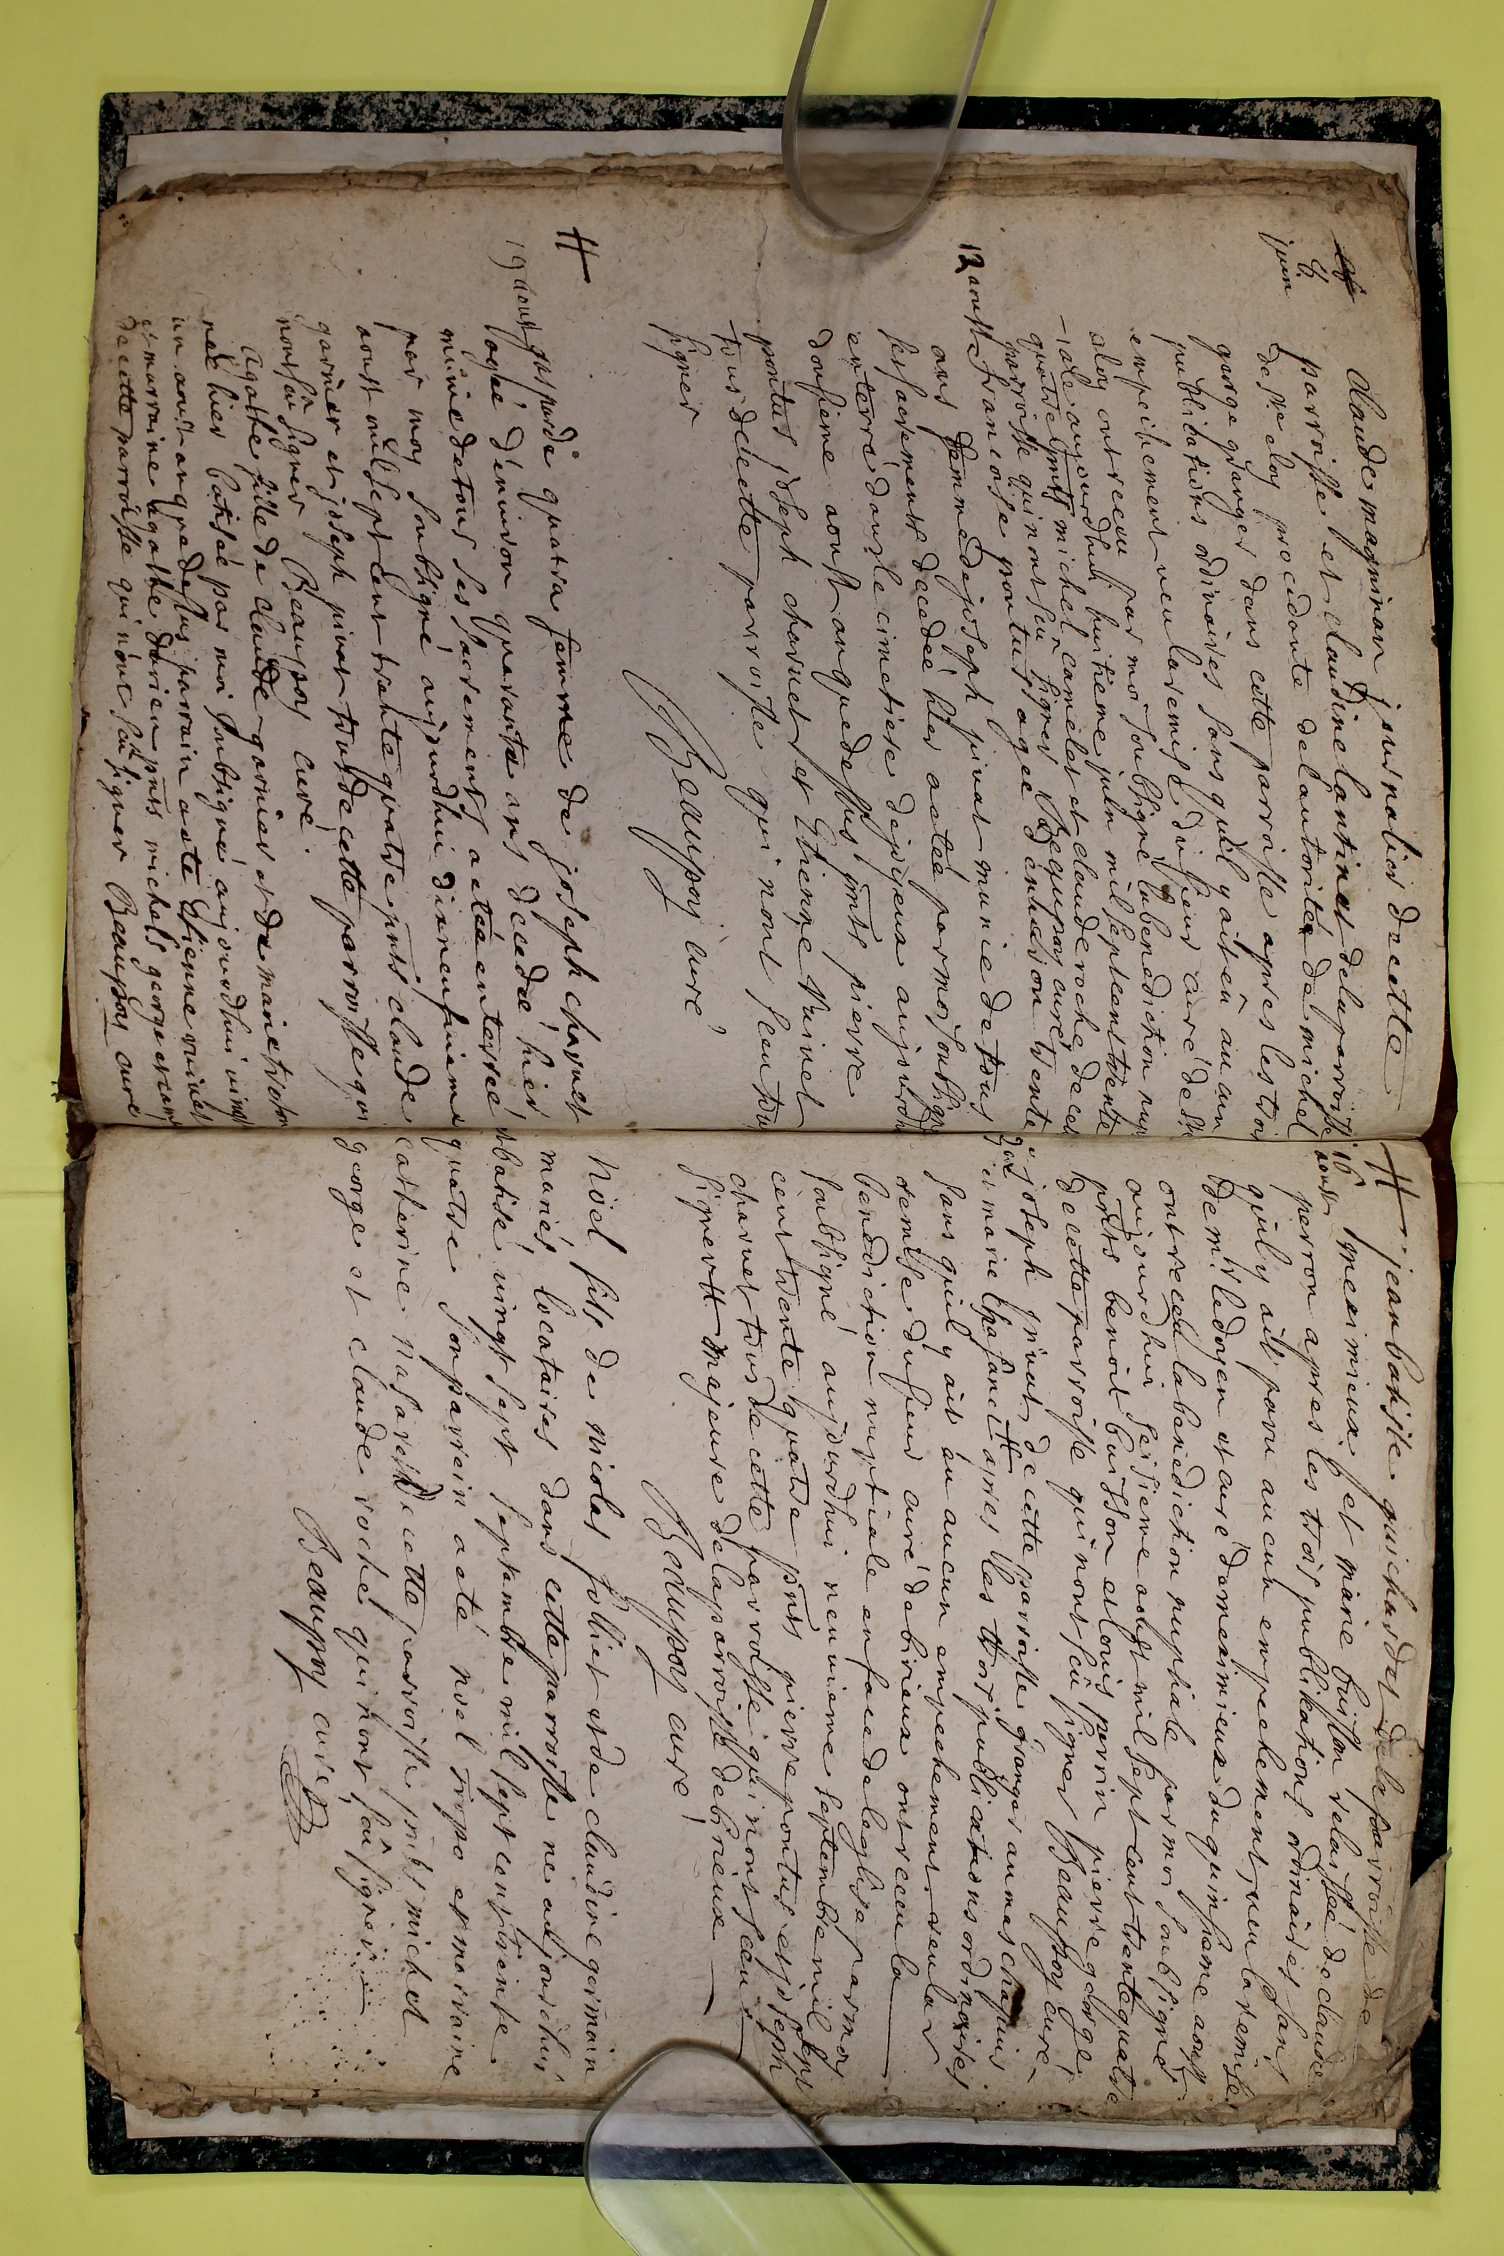 8
juin
Claude magninon journalier de cette
parroisse et claudine lantinet de la parroisse
de St eloy procedante de l'autorité de michel
george granger dans cette parroisse apres les trois
publications ordinaires sans qu'il y ait eû aucun
empechement veu la remise du sieur curé de St
eloy ont receu par moi soubsigné la benediction nup
-iale aujourdhui huitieme juin mil sept cent trente
quatre pnts michel camelet et claude roche de cet
parroisse qui n'ont sceu signer Beaupoy curé
12 aoust francoise pontus agée d'environ trente
ans femme de joseph pivat munie de tous
ses sacrements decedée hier a eté par moi soubsigné
enterré dans le cimetiere de pizeux aujourdh
douzieme aoust an que dessus pnts pierre
pontus joseph charvet et Etienne Vuinet
tous de cette parroisse qui n'ont sceu
signer
Beaupoy curé
H
19 aoust gasparde quatra femme de joseph charvet
agée d'environ quarante ans decedée hier
munie de tous ses sacrements a eté enterreé
par moy soubsigné aujourdhui dixneufvieme
aoust mil sept cent trente quatre pnts claude
garnier et joseph pivat tous de cette parroisse qui
n'ont sceu signer Beaupoy curé.
Agathe fille de claude garnier et de marie
neé hier batisée par moi soubsigné aujourdhui vingt
un aoust an que dessus parrain a eté Etienne vuinet
et marraine agathe pnts michel george et
de cette parroisse qui n'ont sceu signer Beaupoy curé
H
16
aoust
jean batiste guichardet de la parroisse de
meximieux et marie buisson relaisseé de claude
perron apres les trois publications ordinaires sans
qu'il y ait paru aucun empechement veu la remise
de mr le doyen et curé de meximieux du quinsieme aoust
ont receu la benediction nuptiale par moi soubsigné
aujourdhui seisieme aoust mil sept cent trente quatre
pnts benoit buisson et louis perrin pierre george
de cette parroisse qui n'ont sceu signer Beaupoy curé
joseph pivat de cette parroisse granger au mas chapuis
et marie apres les trois publications ordinaires
sans qu'il y ait eu aucun empechement veu la
remise du sieur curé de birieux ont receu la
benediction nuptiale en face de leglise par moy
soubsigné aujourdhui neuvieme septembre mil sept
cent trente quatre pnts pierre pontus et joseph
charvet tous de cette parroisse qui n'ont sceu
signer H majeure de la parroisse de birieux
Beaupoy curé
Noel fils de nicolas folliet et de claudine germain
mariés locataires dans cette parroisse ne aujourdhui
et batisé vingt sept septembre mil sept cent trente
quatre son parrein a eté noel tropo et marraine
catherine de cette parroisse pnts michel
george et claude roche qui n'ont sceu signer
Beaupoy curé